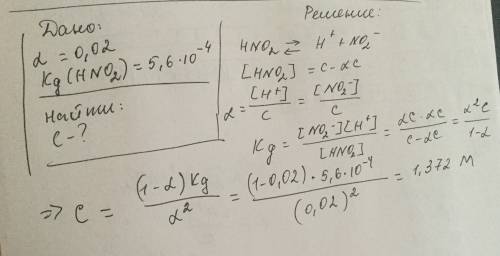 Дано:
α = 0,02
Kg (HNO₂) = 5,6·10⁻⁴
найти:
c - ?
Решение:
HNO₂ ⇄ H⁺ + NO₂⁻
[HNO₂] = c - αc
α = [H⁺]/c = [NO₂⁻]/c
Kg = [NO₂⁻][H⁺]/[HNO₂] = αc·αc/(c-αc) = α²c/(1-α)
=> c = (1-α)Kg/α² = (1-0,02)·5,6·10⁻⁴/(0,02)² = 1,372 M